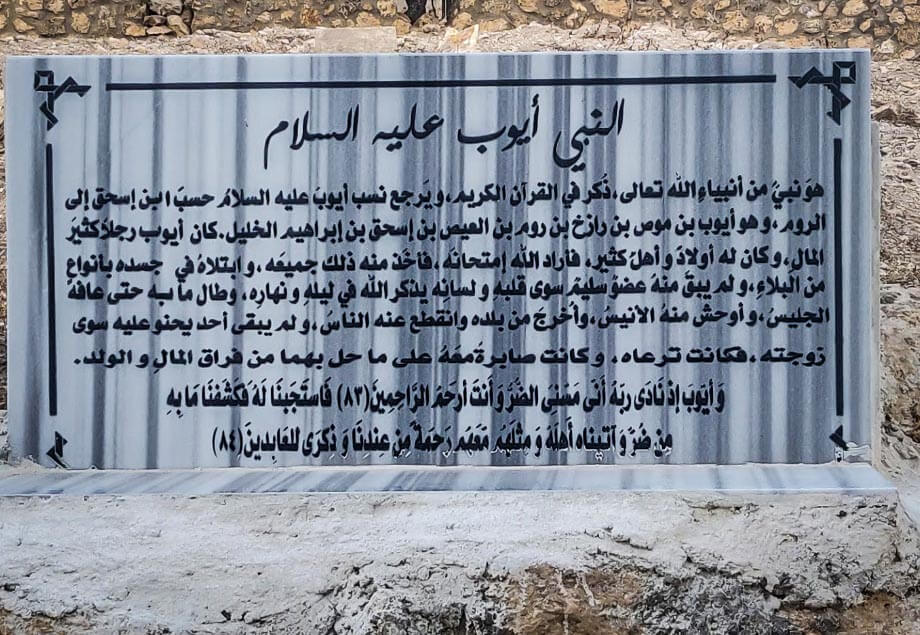 النبي أيوب عليه السلام
هوَ نبيٌ من أنبياءِ الله تعالى، ذُكر في القرآن الكريم، ويَرجع نسب أيوبَ عليه السلامُ حسبَ ابن إسحق إلى
الروم، وهو أيوب بن موص بن رازخ بن روم بن العيص بن إسحق بن إبراهيم الخليل. كان أيوب رجلاً كثيرَ
المال، وكان له أولادَ و أهلَ كثير، فأراد الله إمتحانه، فأخَذ منه ذلك جميعَه، و ابتلاهُ في جسده بأنواعِ
من البلاءِ، و لم يبقَ منهُ عضوٌ سليمٌ سوى قلبهِ و لسانِه يذكر الله في ليلهِ و نهارِه، وطال ما به حتى عافهُ
الجليسُ، و أوحش منهُ الانيسُ، وأُخرجَ من بلده وانقطع عنه الناسُ، و لم يبقى أحد يحنو عليه سوى
زوجته، فكانت ترعاه، وكانت صابرةً معَهُ على ما حل بهما من فراق المالِ و الولد.
وَ أَيُوبَ إِذ نَادَى رِبَهُ أَنَى مَسَنِىَ الضُرُ وَ أَنتَ أَرحَمُ الرَاحِمِينَ (٨٣) فَاستَجَبنَا لَهُ فَكَشَفنَا مَا بِهِ
مِن ضُرٍ وَ آتَيناه أَهلَهُ وَ مِثلَهُم مَعَهُم رَحمَةً مِن عِندِنَا وَ ذِكرَى للعَابِدينَ (٨٤)